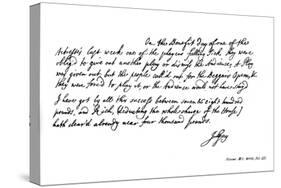 On the Benefit Day of one of the
Actresses last week one of the players falling sick they were
obliged to give out another play or dismiss the Audience, A Play
was given out, but the people call'd out for the Beggars Opera, &
they were forced to play it, or the Audience would not have stay'd
I have got by all this success between seven & eight hundred
pounds, and Rich, (deducting the whole charge of the House)
hath clear'd already near four thousand pounds.
J Gay